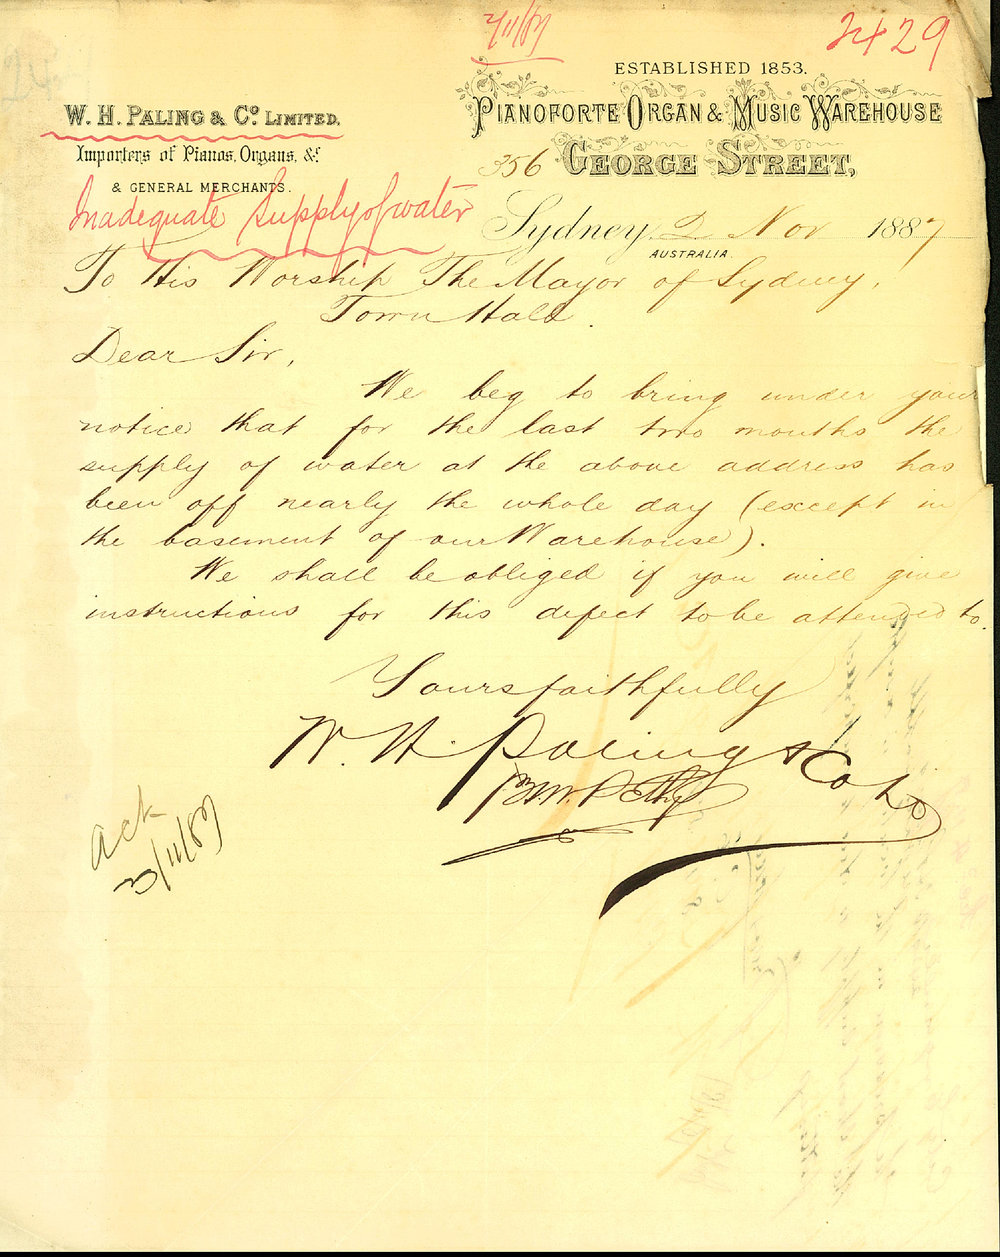 2/11/87
2429
ESTABLISHED 1853.
W. H. PALING & Co. LIMITED.
PIANOFORTE ORGAN & MUSIC WAREHOUSE
Importers of Pianos, Organs, &c
356 GEORGE STREET,
& GENERAL MERCHANTS.
Inadequate Supply of water
Sydney, 2 Nov 1887
AUSTRALIA.
To His Worship The Mayor of Sydney,
Town Hall.
Dear Sir,
We beg to bring under your
notice that for the last two months the
supply of water at the above address has
been off nearly the whole day (except in
the basement of our Warehouse).
We shall be obliged if you will give
instructions for this defect to be attended to.
Yours faithfully
W. H. Paling & Co Ld
Ack
3/11/87